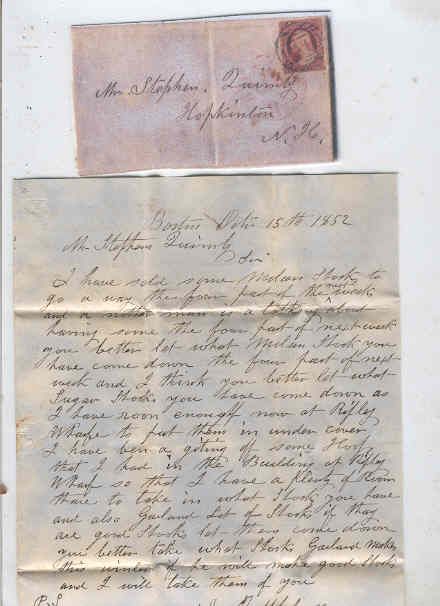 Mr Stephen. Quimby
Hopkinton
N. H.
Boston Octr 15th 1852
Mr Stephen Quimby
Sir
I have sold some Molass Shooks to
go a way the four part of the week
and a nother man is a talk about
having some the four part of next week
you better let what Molass Shook you
have come down the four part of next
week and I think you better let what
Sugar Shooks you have come down as
I have room enough now at Ripley
Wharfe to put them in under cover
I have ben a giting of some Hoops
that I had in the Building at Ripley
Wharf so that I have a plenty of Room
thare to take in what Shook you have
and also Garland Lot of Shooks if thay
are good Shooks let them come down
you better take what Shooks Garland Makes
this winter if he will make good Shooks
and I will take them of you
P. S